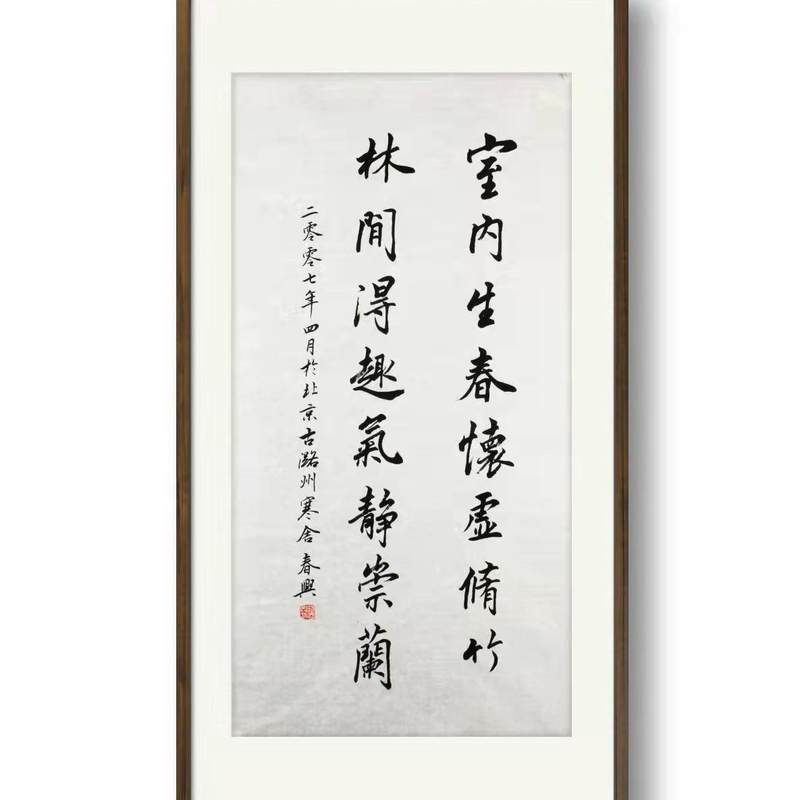 室内生春懷虛脩竹
林間得趣氣靜崇蘭
二零零七年四月於北京古潞州寒舍 春興